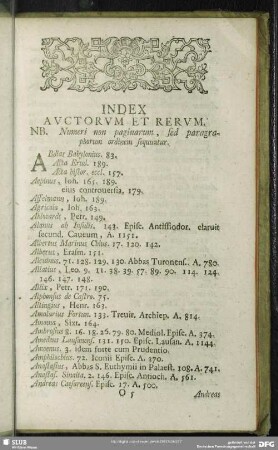 INDEX
AVCTORVM ET RERVM.
NB. Numeri non paginarum, sed paragra-
phorum ordinem sequuntur.
Babylonius. 83.
Acta Erud. 189.
Acta histor. eccl. 157.
Aepinus, Ioh. 165. 189.
eius controuersia, 179.
Affelmann, Ioh. 189.
Agricola, Ioh. 163.
Petr. 149.
Alanus ab Insulis. 143. Episc. Antissiodor. claruit
secund. Caueum, A. 1151.
Albertus Marinus Chius. 17. 120. 142.
Albertus, Erasm. 151.
Alcuinus, 71. 128. 129. 130. Abbas Turonens. A. 780.
Allatius, Leo. 9. 11. 38. 39. 57. 89. 90. 114. 124.
146. 147. 148.
Allix, Petr. 171. 190.
Alphonsus de Castro. 75.
Altingius, Henr. 163.
Amalarius Fortun. 133. Treuir. Archiep. A. 814.
Amama, Sixt. 164.
Ambrosius 8. 16. 18. 26. 79. 80. Mediol. Episc. A. 374.
Amedeus Lausanens. 131. 150. Episc. Lausan. A. 1144.
Amoenus. 3. idem forte cum Prudentio.
Amphilochius. 72. Iconii Episc. A. 370.
Anastasius, Abbas S. Euthymii in Palaest. 108. A. 741.
Anastas. Sinaita, 2. 146. Episc. Antioch. A. 561.
Andreas Caesarens. Episc. 17. A. 500.
O 5 Andreas
SLUB